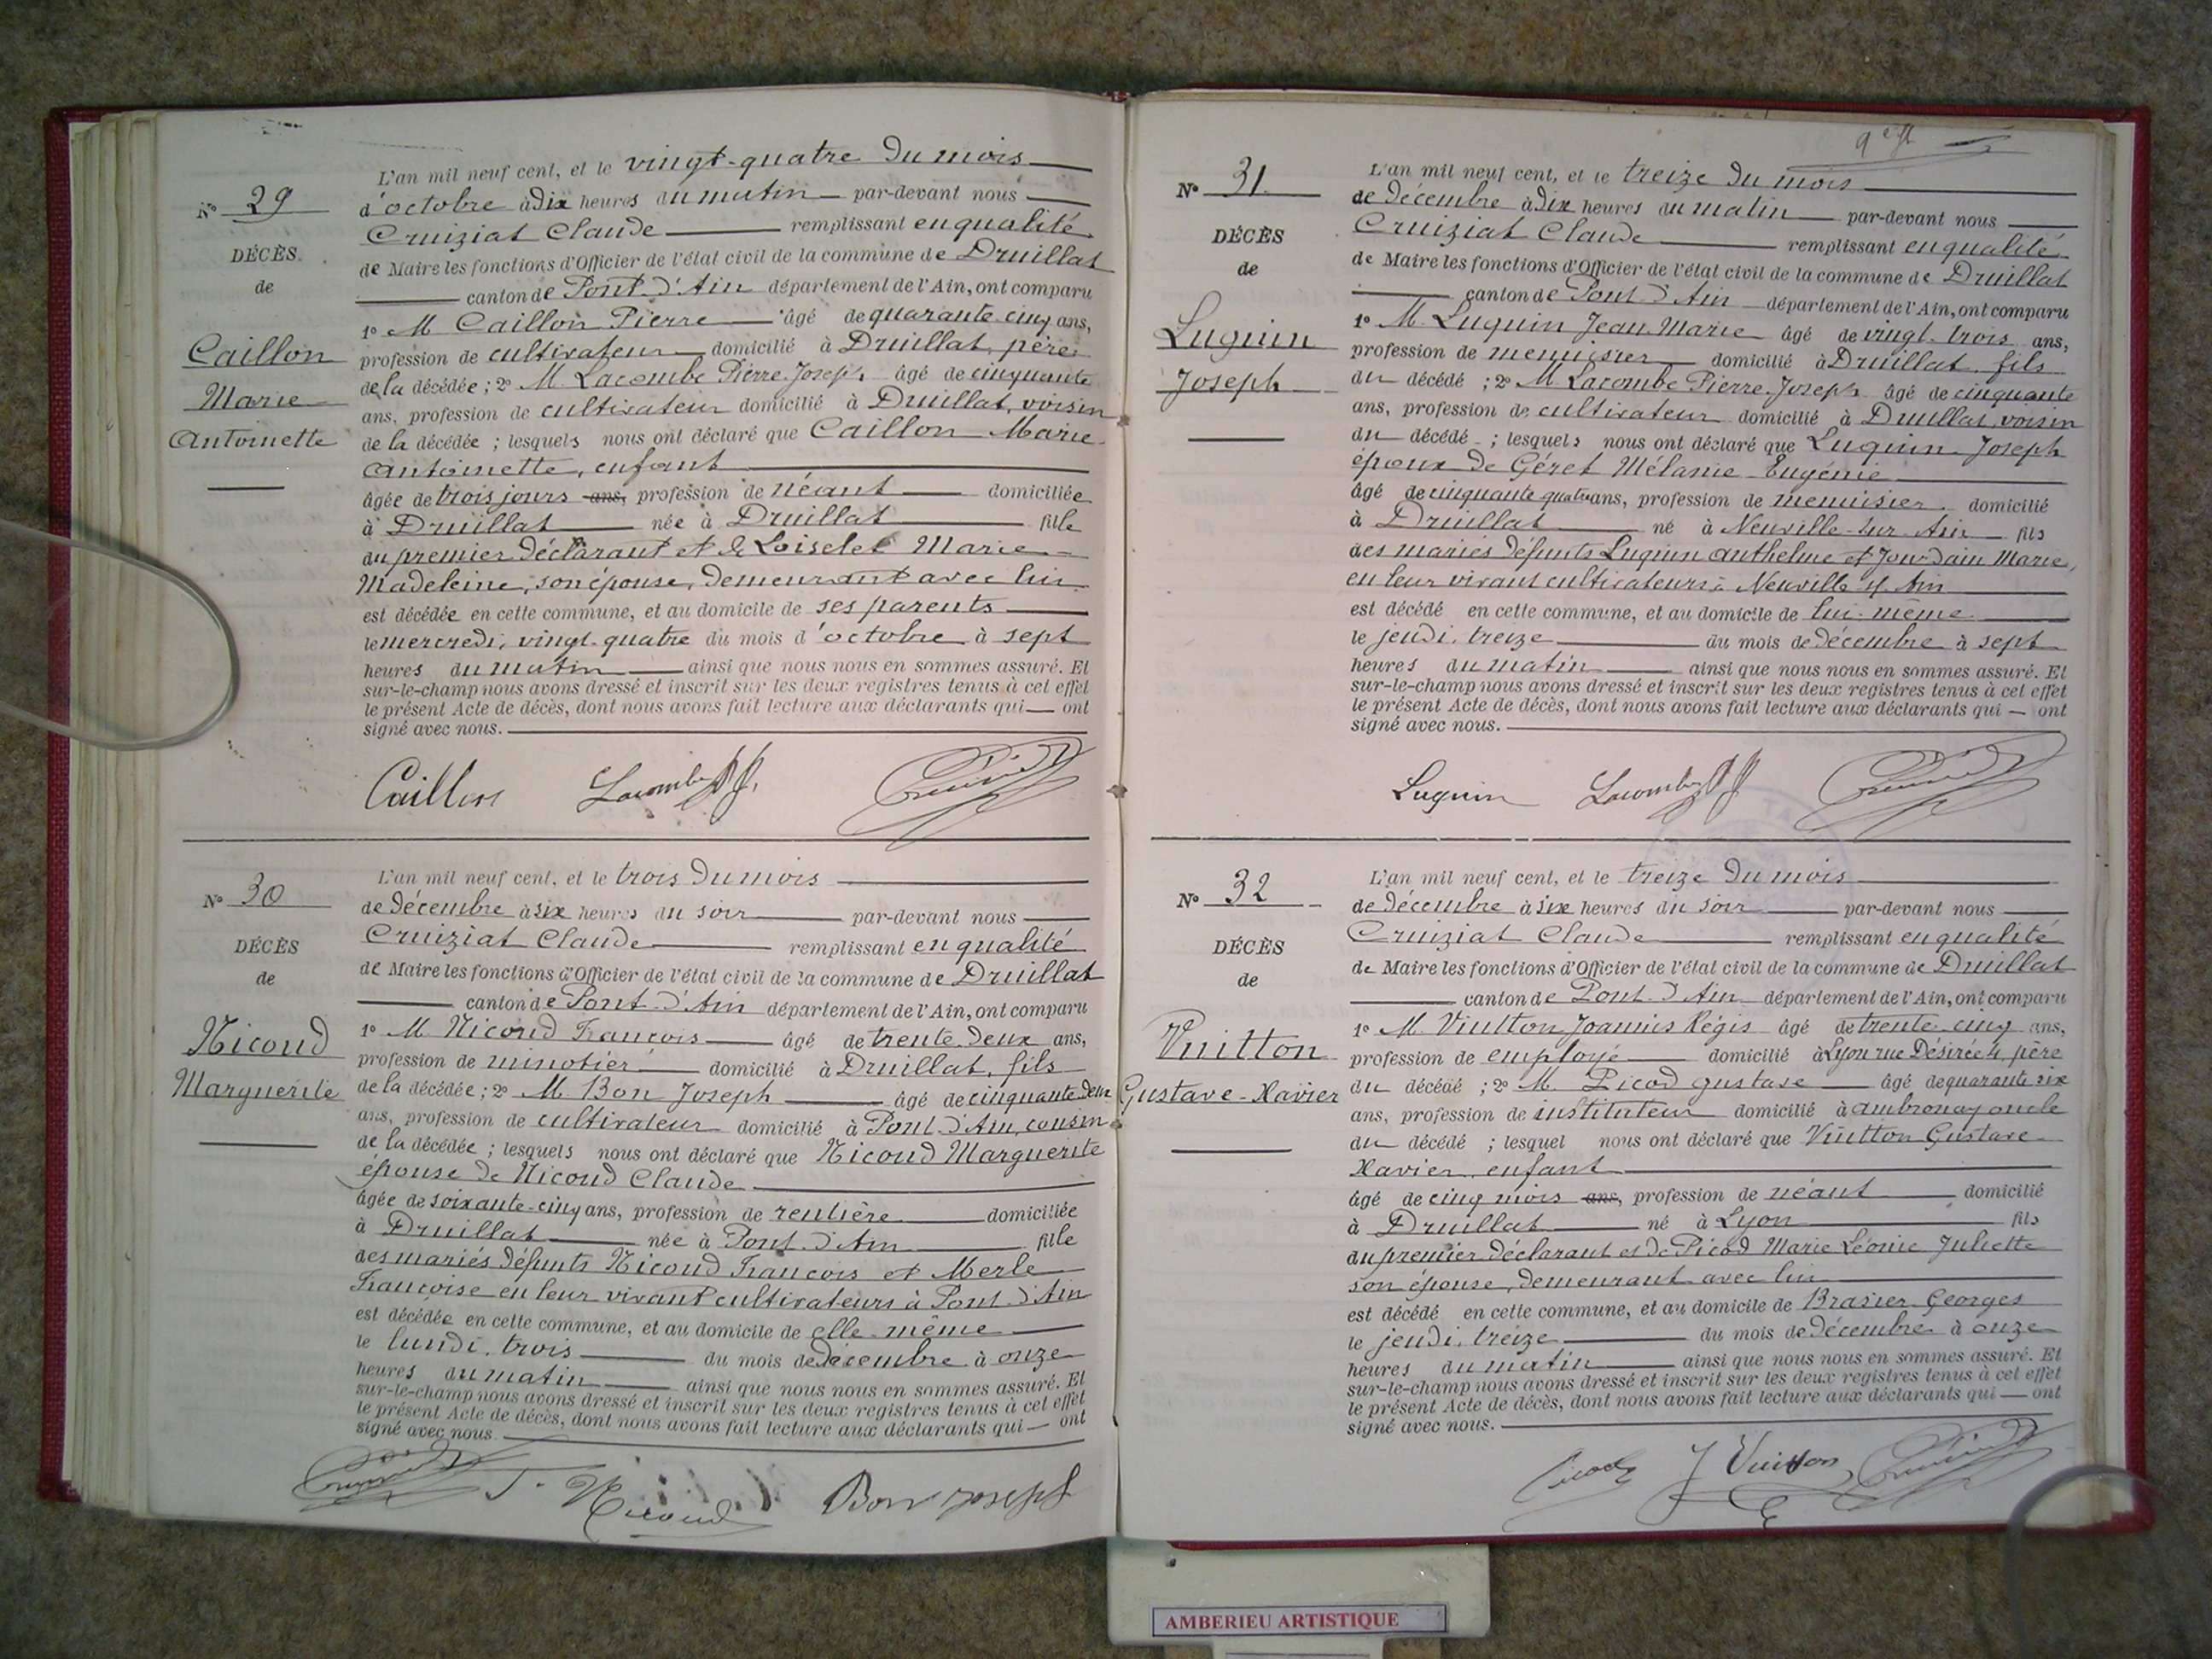 L'an mil neuf cent, et le vingt-quatre du mois
N° 29
d'octobre à dix heures du matin par-devant nous
Cruiziat Claude remplissant en qualité
DÉCÈS
de Maire les fonctions d'Officier de l'état civil de la commune de Druillat
de
canton de Pont-d'Ain département de l'Ain, ont comparu
1° M Caillon Pierre âgé de quarante-cinq ans,
Caillon
profession de cultivateur domicilié à Druillat, père
de la décédée ; 2° M. Lacombe Pierre-Joseph âgé de cinquante
Marie
ans, profession de cultivateur domicilié à Druillat, voisin
Antoinette
de la décédée ; lesquels nous ont déclaré que Caillon Marie
Antoinette, enfant
âgée de trois jours ans, profession de néant domiciliée
à Druillat née à Druillat fille
du premier déclarant et de Loiselet Marie-
Madeleine, son épouse, demeurant avec lui
est décédée en cette commune, et au domicile de ses parents
le mercredi, vingt-quatre du mois d'octobre à sept
heures du matin ainsi que nous nous en sommes assuré. Et
sur-le-champ nous avons dressé et inscrit sur les deux registres tenus à cet effet
le présent Acte de décès, dont nous avons fait lecture aux déclarants qui ont
signé avec nous.
Caillon Lacombe PJ. Cruiziat
L'an mil neuf cent, et le trois du mois
N° 30
de décembre à six heures du soir par-devant nous
Cruiziat Claude remplissant en qualité
DÉCÈS
de Maire les fonctions d'Officier de l'état civil de la commune de Druillat
de
canton de Pont-d'Ain département de l'Ain, ont comparu
Nicoud
1° M Nicoud François âgé de trente-deux ans,
profession de minotier domicilié à Druillat, fils
Marguerite
de la décédée ; 2° M. Bon Joseph âgé de cinquante-deux
ans, profession de cultivateur domicilié à Pont-d'Ain, cousin
de la décédée ; lesquels nous ont déclaré que Nicoud Marguerite
épouse de Nicoud Claude
âgée de soixante-cinq ans, profession de rentière domiciliée
à Druillat née à Pont-d'Ain fille
des mariés défunts Nicoud François et Merle
Françoise en leur vivant cultivateurs à Pont-d'Ain
est décédée en cette commune, et au domicile de elle-même
le lundi, trois du mois de décembre à onze
heures du matin ainsi que nous nous en sommes assuré. Et
sur-le-champ nous avons dressé et inscrit sur les deux registres tenus à cet effet
le présent Acte de décès, dont nous avons fait lecture aux déclarants qui ont
signé avec nous.
Cruiziat Nicoud Bon Joseph
L'an mil neuf cent, et le treize du mois
N° 31
de décembre à dix heures du matin par-devant nous
Cruiziat Claude remplissant en qualité
DÉCÈS
de Maire les fonctions d'Officier de l'état civil de la commune de Druillat
de
canton de Pont-d'Ain département de l'Ain, ont comparu
Luguin
1° M. Luguin Jean-Marie âgé de vingt-trois ans,
profession de menuisier domicilié à Druillat, fils
Joseph
du décédé ; 2° M Lacombe Pierre-Joseph âgé de cinquante
ans, profession de cultivateur domicilié à Druillat, voisin
du décédé ; lesquels nous ont déclaré que Luguin Joseph
époux de Géret Mélanie-Eugénie
âgé de cinquante quatre ans, profession de menuisier domicilié
à Druillat né à Neuville-sur-Ain fils
des mariés défunts Luguin Anthelme et Jourdain Marie,
en leur vivant cultivateurs à Neuville s/ Ain
est décédé en cette commune, et au domicile de lui-même
le jeudi, treize du mois de décembre à sept
heures du matin ainsi que nous nous en sommes assuré. Et
sur-le-champ nous avons dressé et inscrit sur les deux registres tenus à cet effet
le présent Acte de décès, dont nous avons fait lecture aux déclarants qui ont
signé avec nous.
Luguin Lacombe PJ Cruiziat
L'an mil neuf cent, et le treize du mois
N° 32
de décembre à six heures du soir par-devant nous
Cruiziat Claude remplissant en qualité
DÉCÈS
de Maire les fonctions d'Officier de l'état civil de la commune de Druillat
de
canton de Pont-d'Ain département de l'Ain, ont comparu
Vuitton
1° M. Vuitton Joannis Régis âgé de trente-cinq ans,
profession de employé domicilié à Lyon rue Désirée 4, père
Gustave-Xavier
du décédé ; 2° M. Picod Gustave âgé de quarante six
ans, profession de instituteur domicilié à Ambronay oncle
du décédé ; lesquel nous ont déclaré que Vuitton Gustave-
Xavier, enfant
âgé de cinq mois ans, profession de néant domicilié
à Druillat né à Lyon fils
du premier déclarant et de Picod Marie Léonie Juliette
son épouse, demeurant avec lui
est décédé en cette commune, et au domicile de Brasier Georges
le jeudi, treize du mois de décembre à onze
heures du matin ainsi que nous nous en sommes assuré. Et
sur-le-champ nous avons dressé et inscrit sur les deux registres tenus à cet effet
le présent Acte de décès, dont nous avons fait lecture aux déclarants qui ont
signé avec nous.
Picod J Vuitton Cruiziat
AMBERIEU ARTISTIQUE